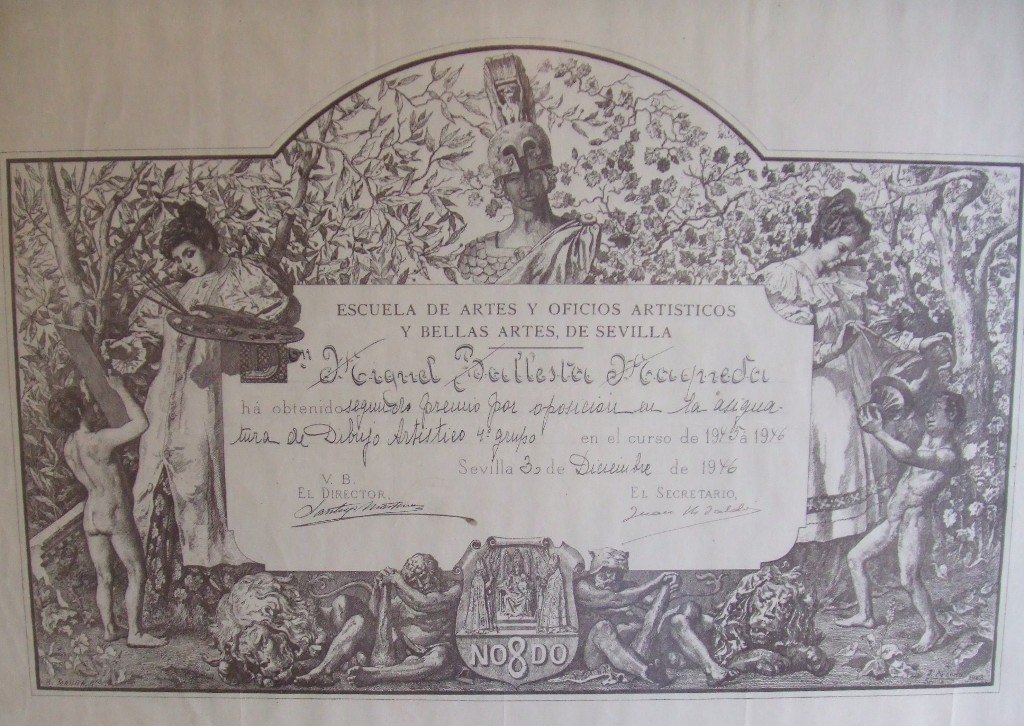 ESCUELA DE ARTES Y OFICIOS ARTISTICOS
Y BELLAS ARTES, DE SEVILLA
Dⁿ. Miguel Ballesta Maqueda
há obtenido segundo premio por oposición en la asigna-
tura de Dibujo Artístico 4º grupo en el curso de 1945 a 1946
Sevilla 30 de Diciembre de 1946
V. B.
EL DIRECTOR, EL SECRETARIO,
NO8DO